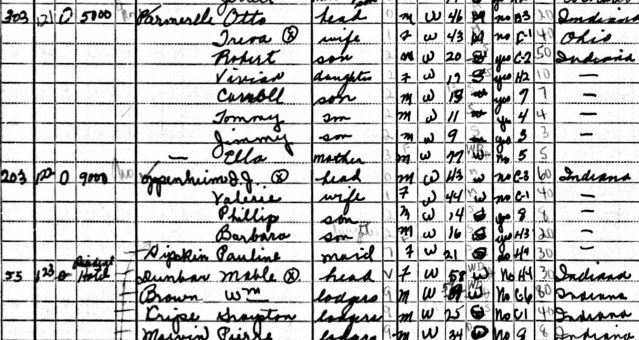 303 121 O 5000 Parmerlee Otto head 0 m W 46 M no B3 20 Indiana
Treva ⓧ wife 1 F W 43 M no C-1 40 Ohio
Robert son 2 m W 20 S yes C-2 50 Indiana
Vivian daughter 2 F W 17 S yes H2 10 —
Carroll son 2 m W 15 S yes 7 7 —
Tommy son 2 m W 11 S yes 4 4 —
Jimmy son 2 m W 9 S yes 3 3 —
— Ella mother 3 F W 77 no 5 5 —
203 122 O 9000 Oppenheim J. ⓧ head 0 m W 43 no C-3 60 Indiana
Valerie wife 1 F W 44 no C-1 40 —
Phillip son 2 m W 14 S yes 8 8 —
Barbara son W 16 S yes H3 20 —
Pauline maid 7 F W 21 S no H4 30 —
55 123 Hotel Dunbar Mable ⓧ head F W 58 no H4 30 Indiana
Brown Wm lodger 9 m W no C-6 80 Indiana
lodger m W 25 S no C-1 40 Indiana
Marvin Pierre lodger m W 34 no 8 8 Indiana